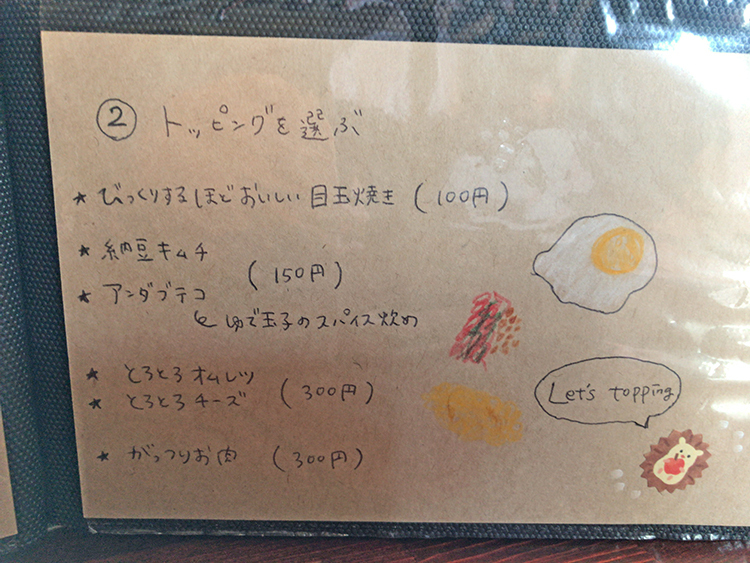 ② トッピングを選ぶ
★ びっくりするほどおいしい 目玉焼き (100円)
★ 納豆キムチ
(150円)
★ アンダブテコ
↳ ゆで玉子のスパイス炒め
★ とろとろオムレツ
(300円)
★ とろとろチーズ
★ がっつりお肉 (300円)
Let's topping